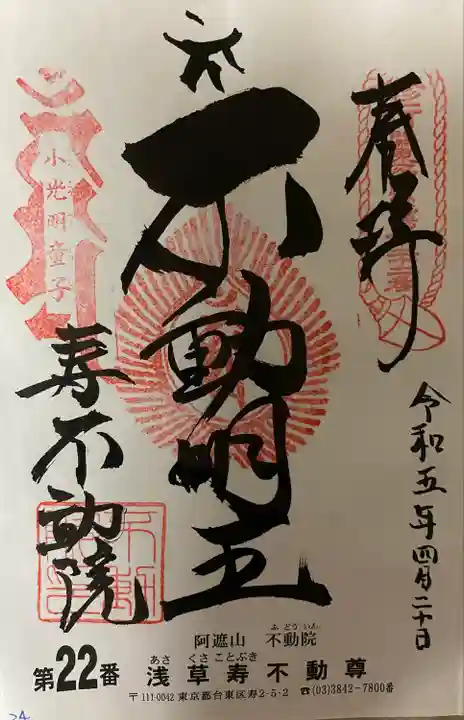 奉拝
令和五年四月二十日
不動明王
小光明童子
寿不動院
阿遮山 不動院
ふどういん
第22番 浅草寿不動尊
あさくさことぶき
〒111-0042 東京都台東区寿2-5-2 ☎(03)3842-7800番
24